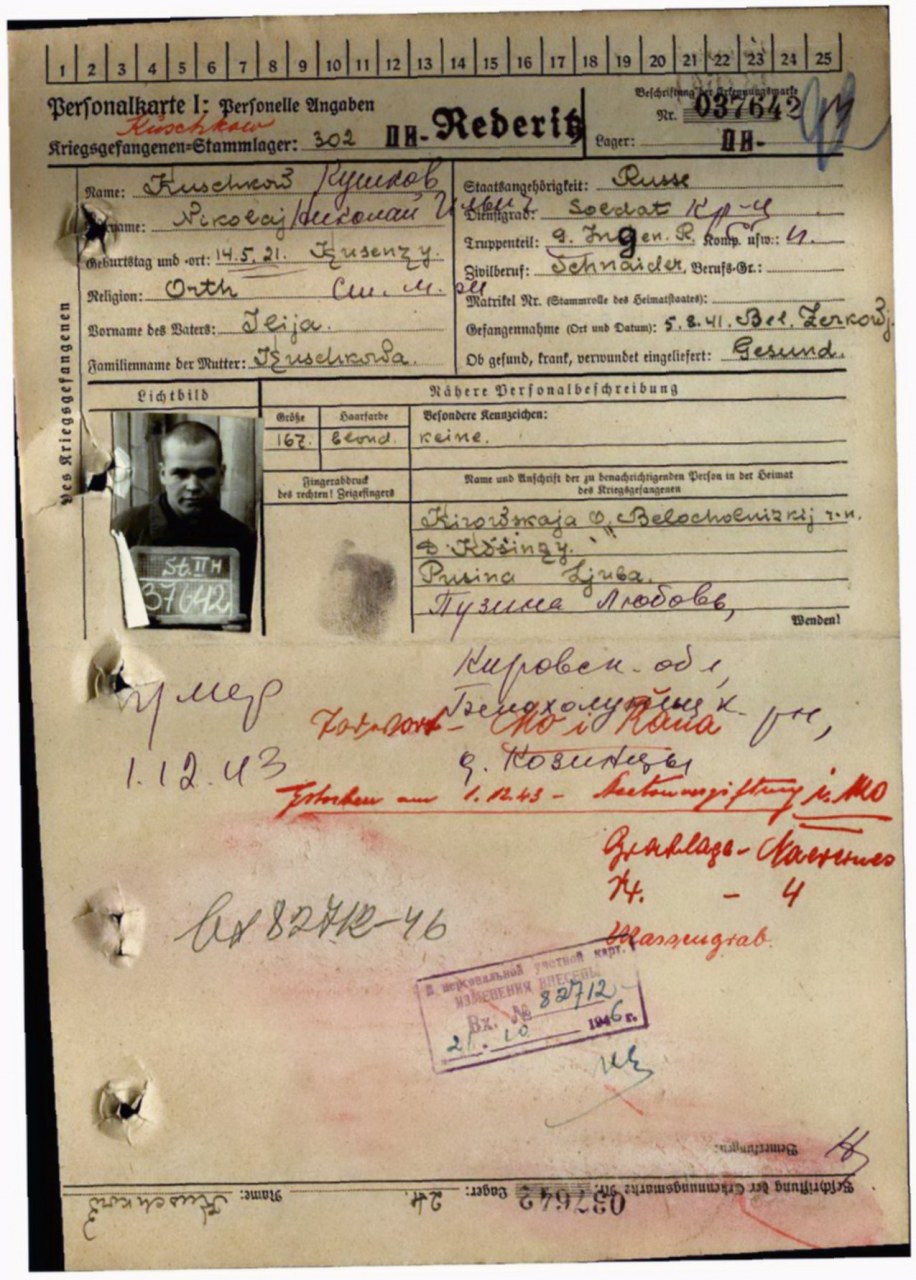 1 2 3 4 5 6 7 8 9 10 11 12 13 14 15 16 17 18 19 20 21 22 23 24 25
Personalkarte I: Personelle Angaben
Kuschkow
Kriegsgefangenen=Stammlager: 302 II H- Rederitz
Beschriftung der Erkennungsmarke
Nr. 037642
Lager: II H-
Des Kriegsgefangenen
Name: Kuschkow Кушков
Nikolaj Николай
Geburtstag und -ort: 14.5.21.
Religion: Orth
Vorname des Vaters: Ilija.
Familienname der Mutter: Kuschkowa.
Staatsangehörigkeit: Russe
Dienstgrad: Soldat Кр-ц
Truppenteil: 9. Komp. usw.:
Zivilberuf: Schnaider, Berufs-Gr.:
Matrikel Nr. (Stammrolle des Heimatstaates):
Gefangennahme (Ort und Datum): 5.8.41. Bel. Zerkowj
Ob gesund, krank, verwundet eingeliefert: Gesund.
Lichtbild
Nähere Personalbeschreibung
Größe
Haarfarbe
Besondere Kennzeichen:
167. blond. keine.
Fingerabdruck
des rechten! Zeigefingers
Name und Anschrift der zu benachrichtigenden Person in der Heimat
des Kriegsgefangenen
St. II H
37642
Kirowskaja O. Belocholnizkij r-n.
D. Kosinzy.
Pusina Ljuba.
Пузина Любовь,
Wenden!
Кировск. обл,
умер
рн,
1.12.43
д. Козинцы
Gestorben am 1.12.43 - i. Mo
Grablage -
Nr. - 4
Massengrab.
Вх 82712-46
В персональной учетной карт.
ИЗМЕНЕНИЯ ВНЕСЕНЫ
Вх. № 82712
21. 10 1946 г.
Bemerkungen:
Beschriftung der Erkennungsmarke Nr. 037642 Lager: Name: Kuschkow